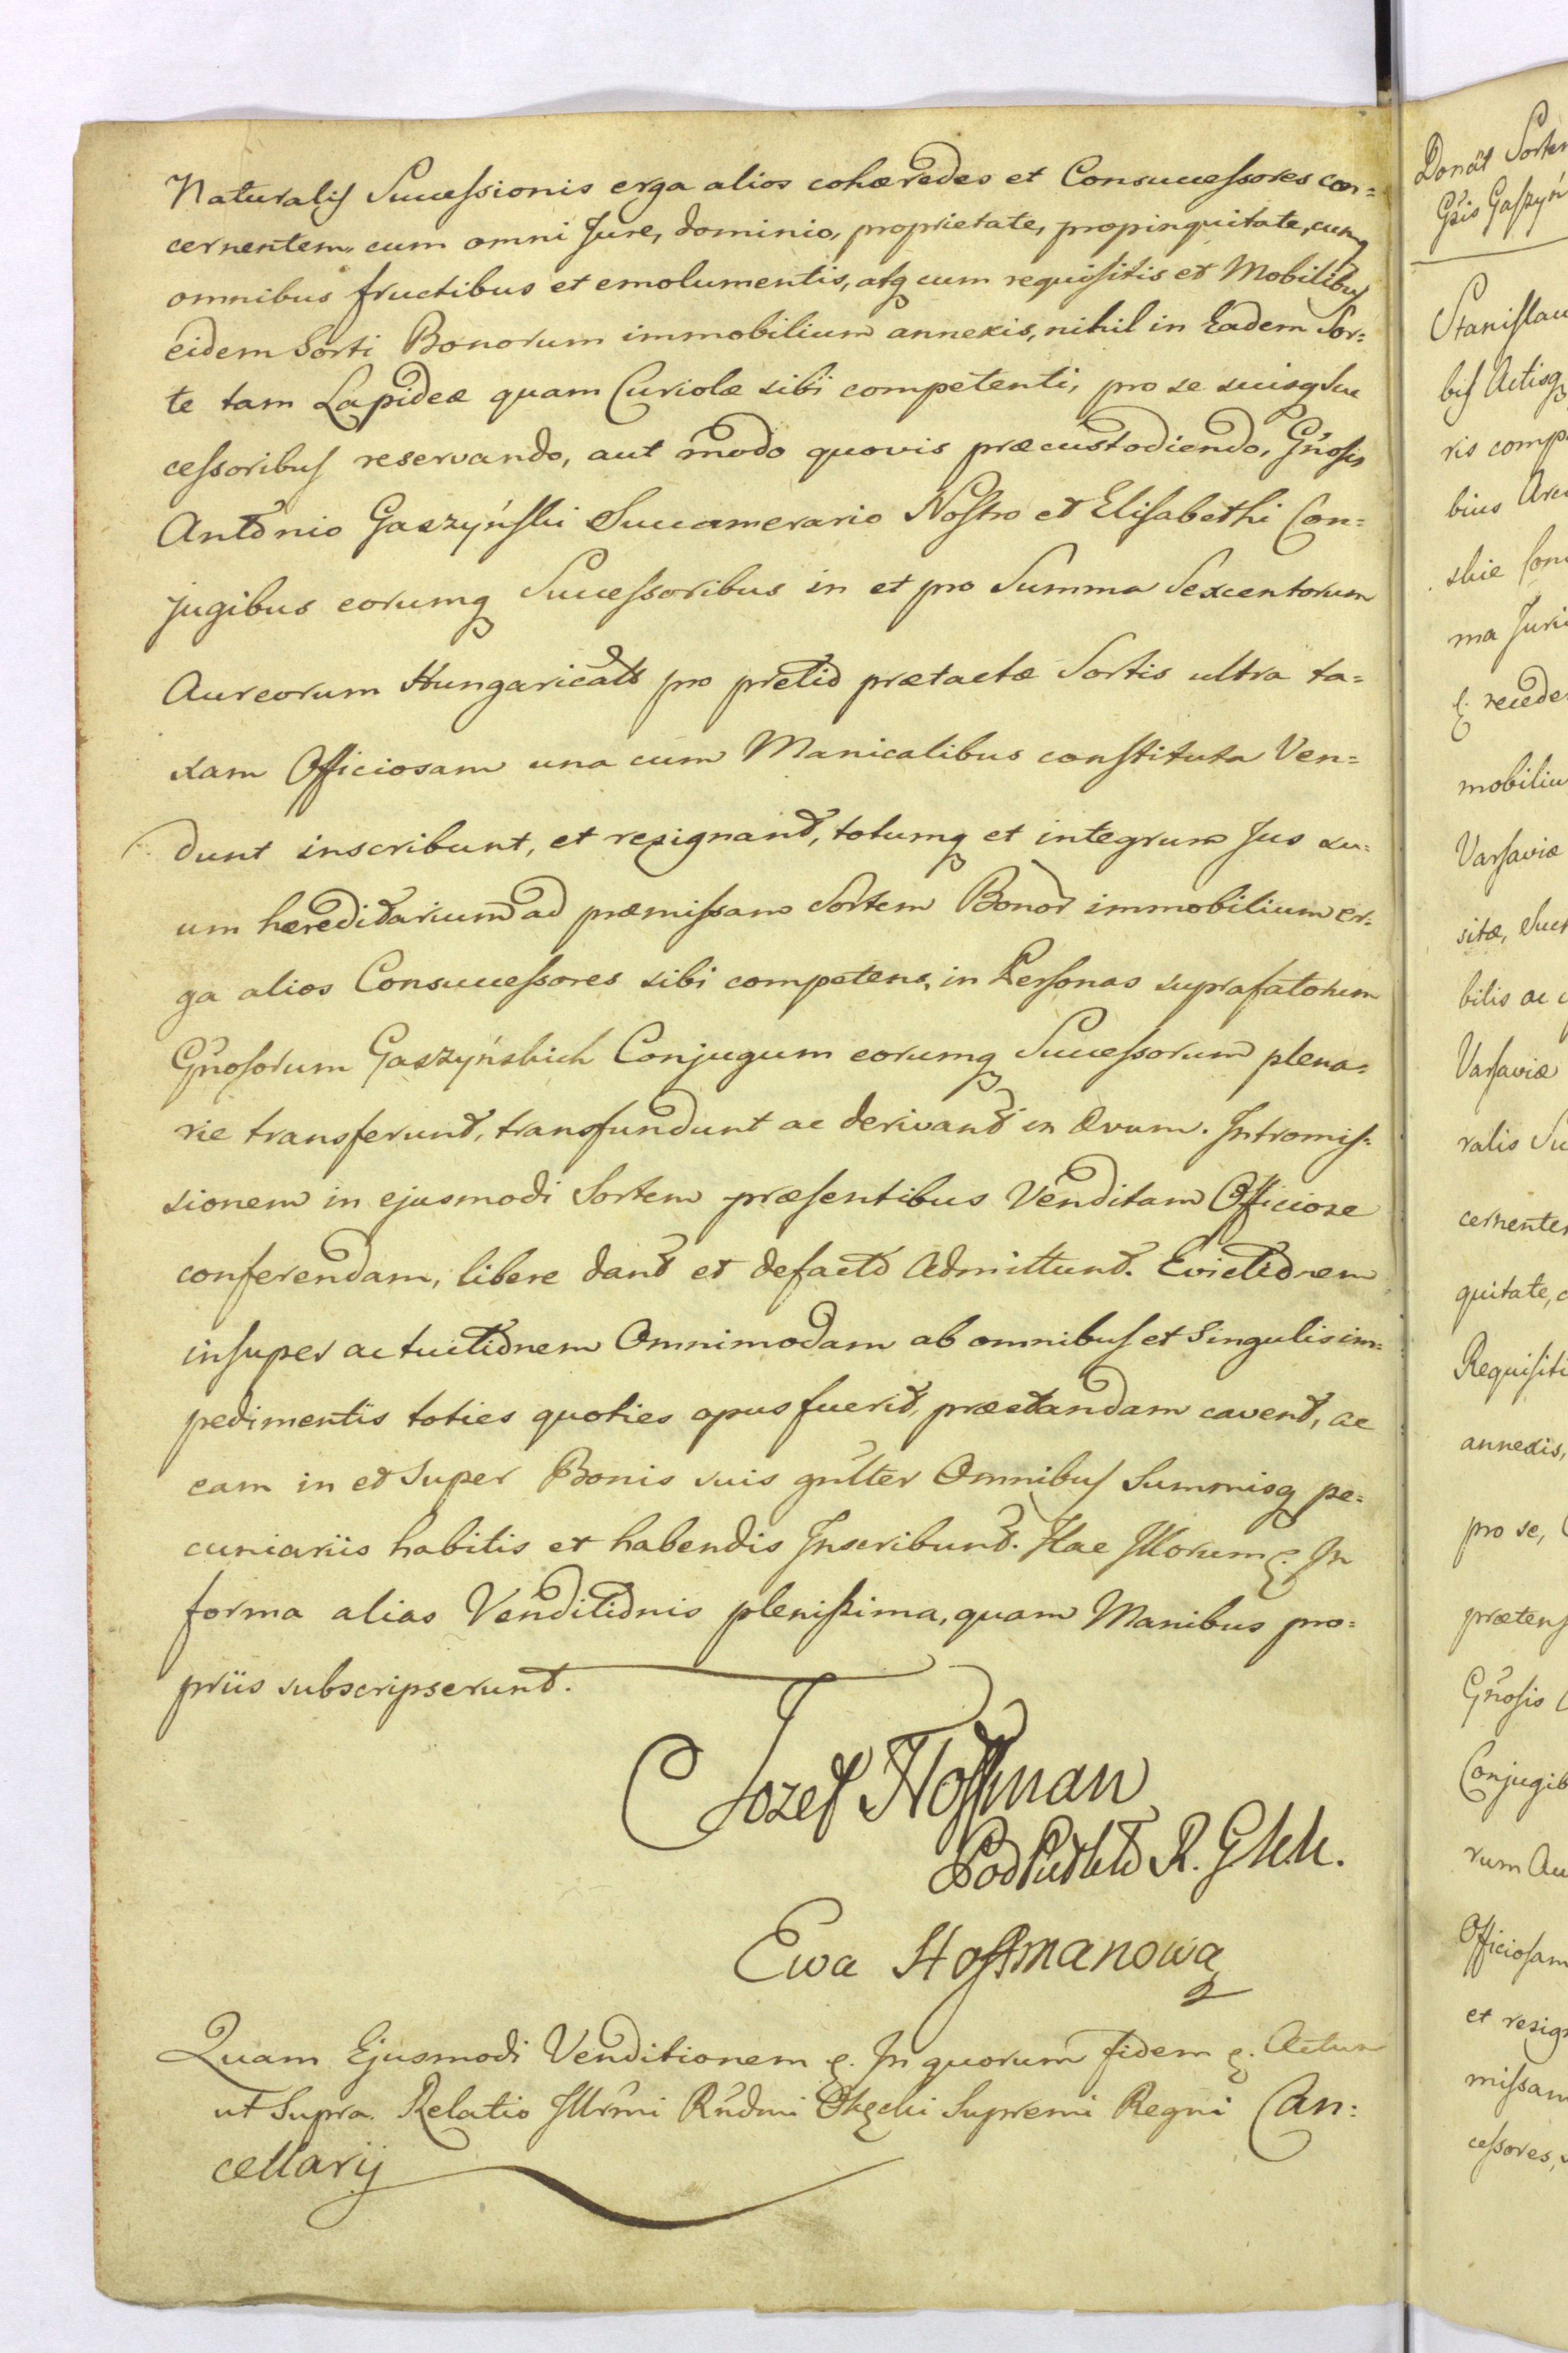 Naturalis Successionis erga alios cohæredes et Consuccessores con=
cernentem, cum omni Jure, dominio, proprietate, propinquitate, cumq
omnibus fructibus et emolumentis, atq cum requisitis et Mobilibus
eidem Sorti Bonorum immobilium annexis, nihil in Eadem Sor=
te tam Lapideæ quam Curiolæ sibi competenti, pro se suisq Suc
cessoribus reservando, aut modo quovis præcustodiendo, Gnosis
Antonio Gaszyński Succamerario Nostro et Elisabethi Con=
jugibus eorumq Successoribus in et pro Summa Sexcentorum
Aureorum Hungaricalt pro pretio prætactæ Sortis ultra ta=
xam Officiosam una cum Manicalibus constituta Ven=
dunt inscribunt, et resignant, totumq et integrum Jus su=
um hæreditarium ad præmissam Sortem Bonor immobilium er=
ga alios Consuccessores sibi competens, in Personas suprafatorum
Gnosorum Gaszyńskich Conjugum eorumq Successorum plena=
rie transferunt, transfundunt ac derivant in Ævum. Intromis=
sionem in ejusmodi Sortem præsentibus Venditam Officiose
conferendam, libere dant et defacto Admittunt. Evictionem
insuper ac tuitionem Omnimodam ab omnibus et Singulis im=
pedimentis toties quoties opus fuerit, præstandam cavent, ac
eam in et Super Bonis suis gnlter Omnibus Summisq pe=
cuniariis habitis et habendis Inscribunt. Hac Illorum &. In
forma alias Venditionis plenissima, quam Manibus pro=
priis subscripserunt.
Jozef Hoffman
R. G. K.
Ewa Hoffmanowa
Quam Ejusmodi Venditionem &. In quorum fidem &. Actum
ut Supra. Relatio Illrmi Rndmi Okęcki Supremi Regni Can=
cellarij
Donat Sorten
Gsis Gaszyń
Stanislau
bus Actisq
ris comp
bius Arc
skie Con
ma Juri
&. recede
mobiliu
Varsaviæ
sitæ, Suc
bilis ac
Varsaviæ
ralis Su
cernente
quitate, c
Requisiti
annexis,
pro se,
prætens
Gnosis
Conjugib
rum Au
Officiosam
et resig
missam
cessores,